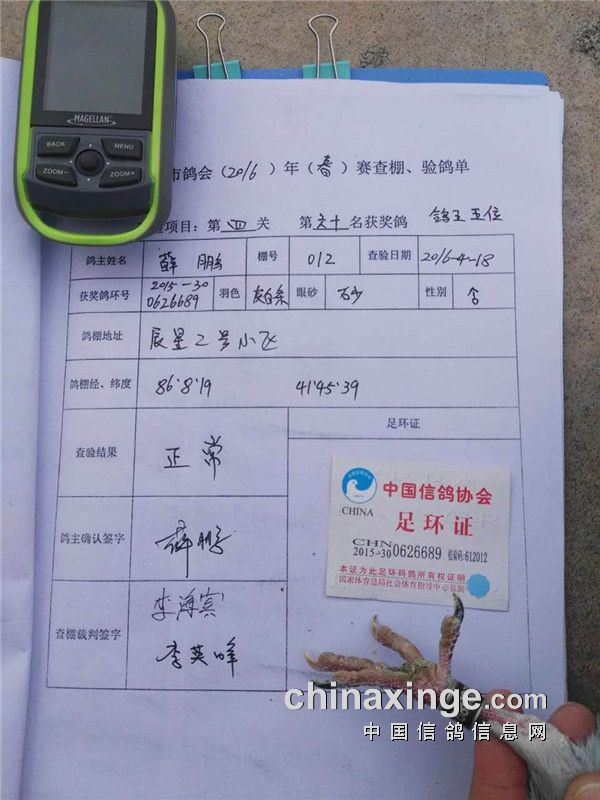 MAGELLAN
BACK
MENU
ZOOM−
ZOOM+
市鸽会(2016)年(春)赛查棚、验鸽单
项目:第四关 第六十名获奖鸽 鸽王五位
鸽主姓名 薛鹏 棚号 012 查验日期 2016-4-18
获奖鸽环号 2015-30 0626689 羽色 灰白条 眼砂 砂 性别 ♂
鸽棚地址 辰星2号小区
鸽棚经、纬度 86°8′19 41°45′39
查验结果 正常
足环证
鸽主确认签字 薛鹏
查棚裁判签字 李海宾
李英峰
CHINA
中国信鸽协会
足环证
CHN
2015-30 0626689 检验码:612012
本证为此足环码鸽所有权证明
国家体育总局社会体育指导中心监制
chinaxinge.com
中国信鸽信息网